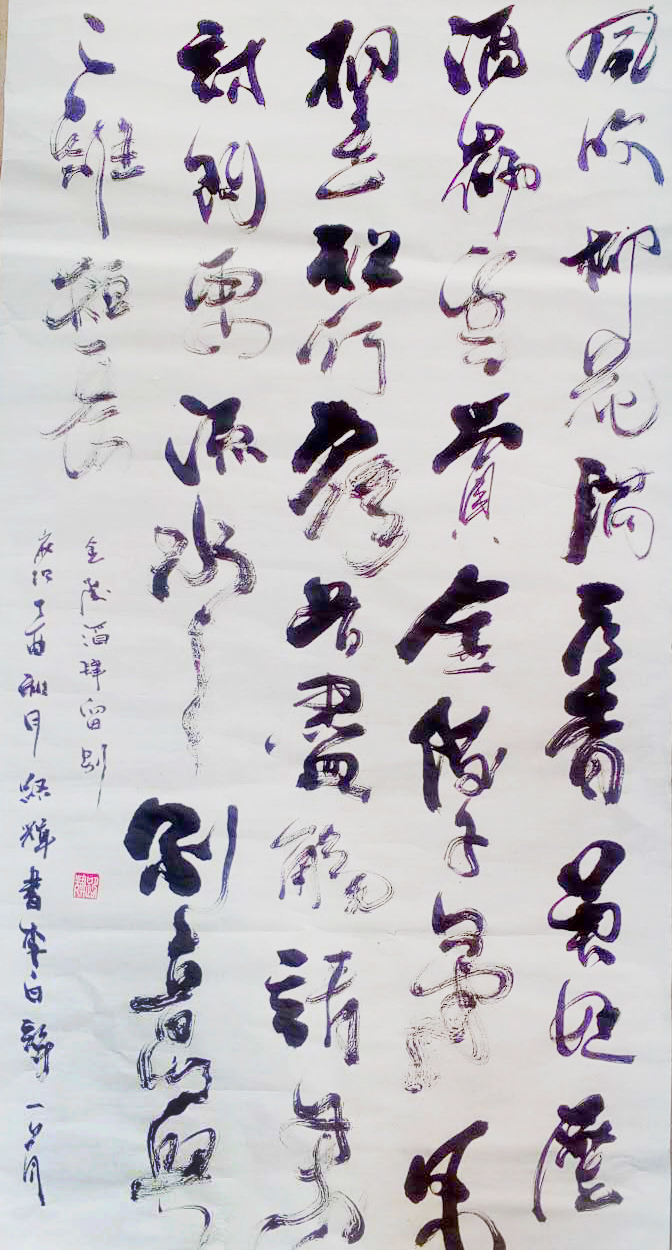 風吹柳花滿店香吳姬壓
酒勸客嘗金陵子弟來
相送欲行不行各盡觴請君
試問東流水別意與
之誰短長
金陵酒肆留別
歲次丁酉秋月輝書李白詩一首